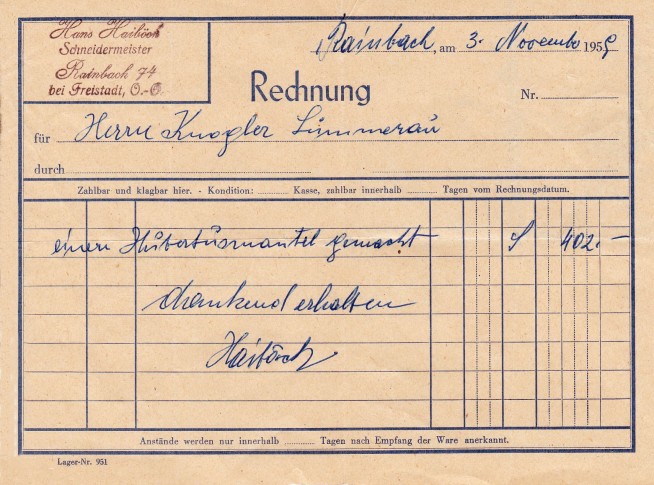 Hans Haiböck
Schneidermeister
Rainbach 74
bei Freistadt, O.-Ö.
Rainbach, am 3. November 1959
Rechnung
Nr.
für Herrn Knogler Summerau
durch
Zahlbar und klagbar hier. - Kondition: Kasse, zahlbar innerhalb Tagen vom Rechnungsdatum.
einen Hubertusmantel gemacht S 402.-
dankend erhalten
Haiböck
Anstände werden nur innerhalb Tagen nach Empfang der Ware anerkannt.
Lager-Nr. 951